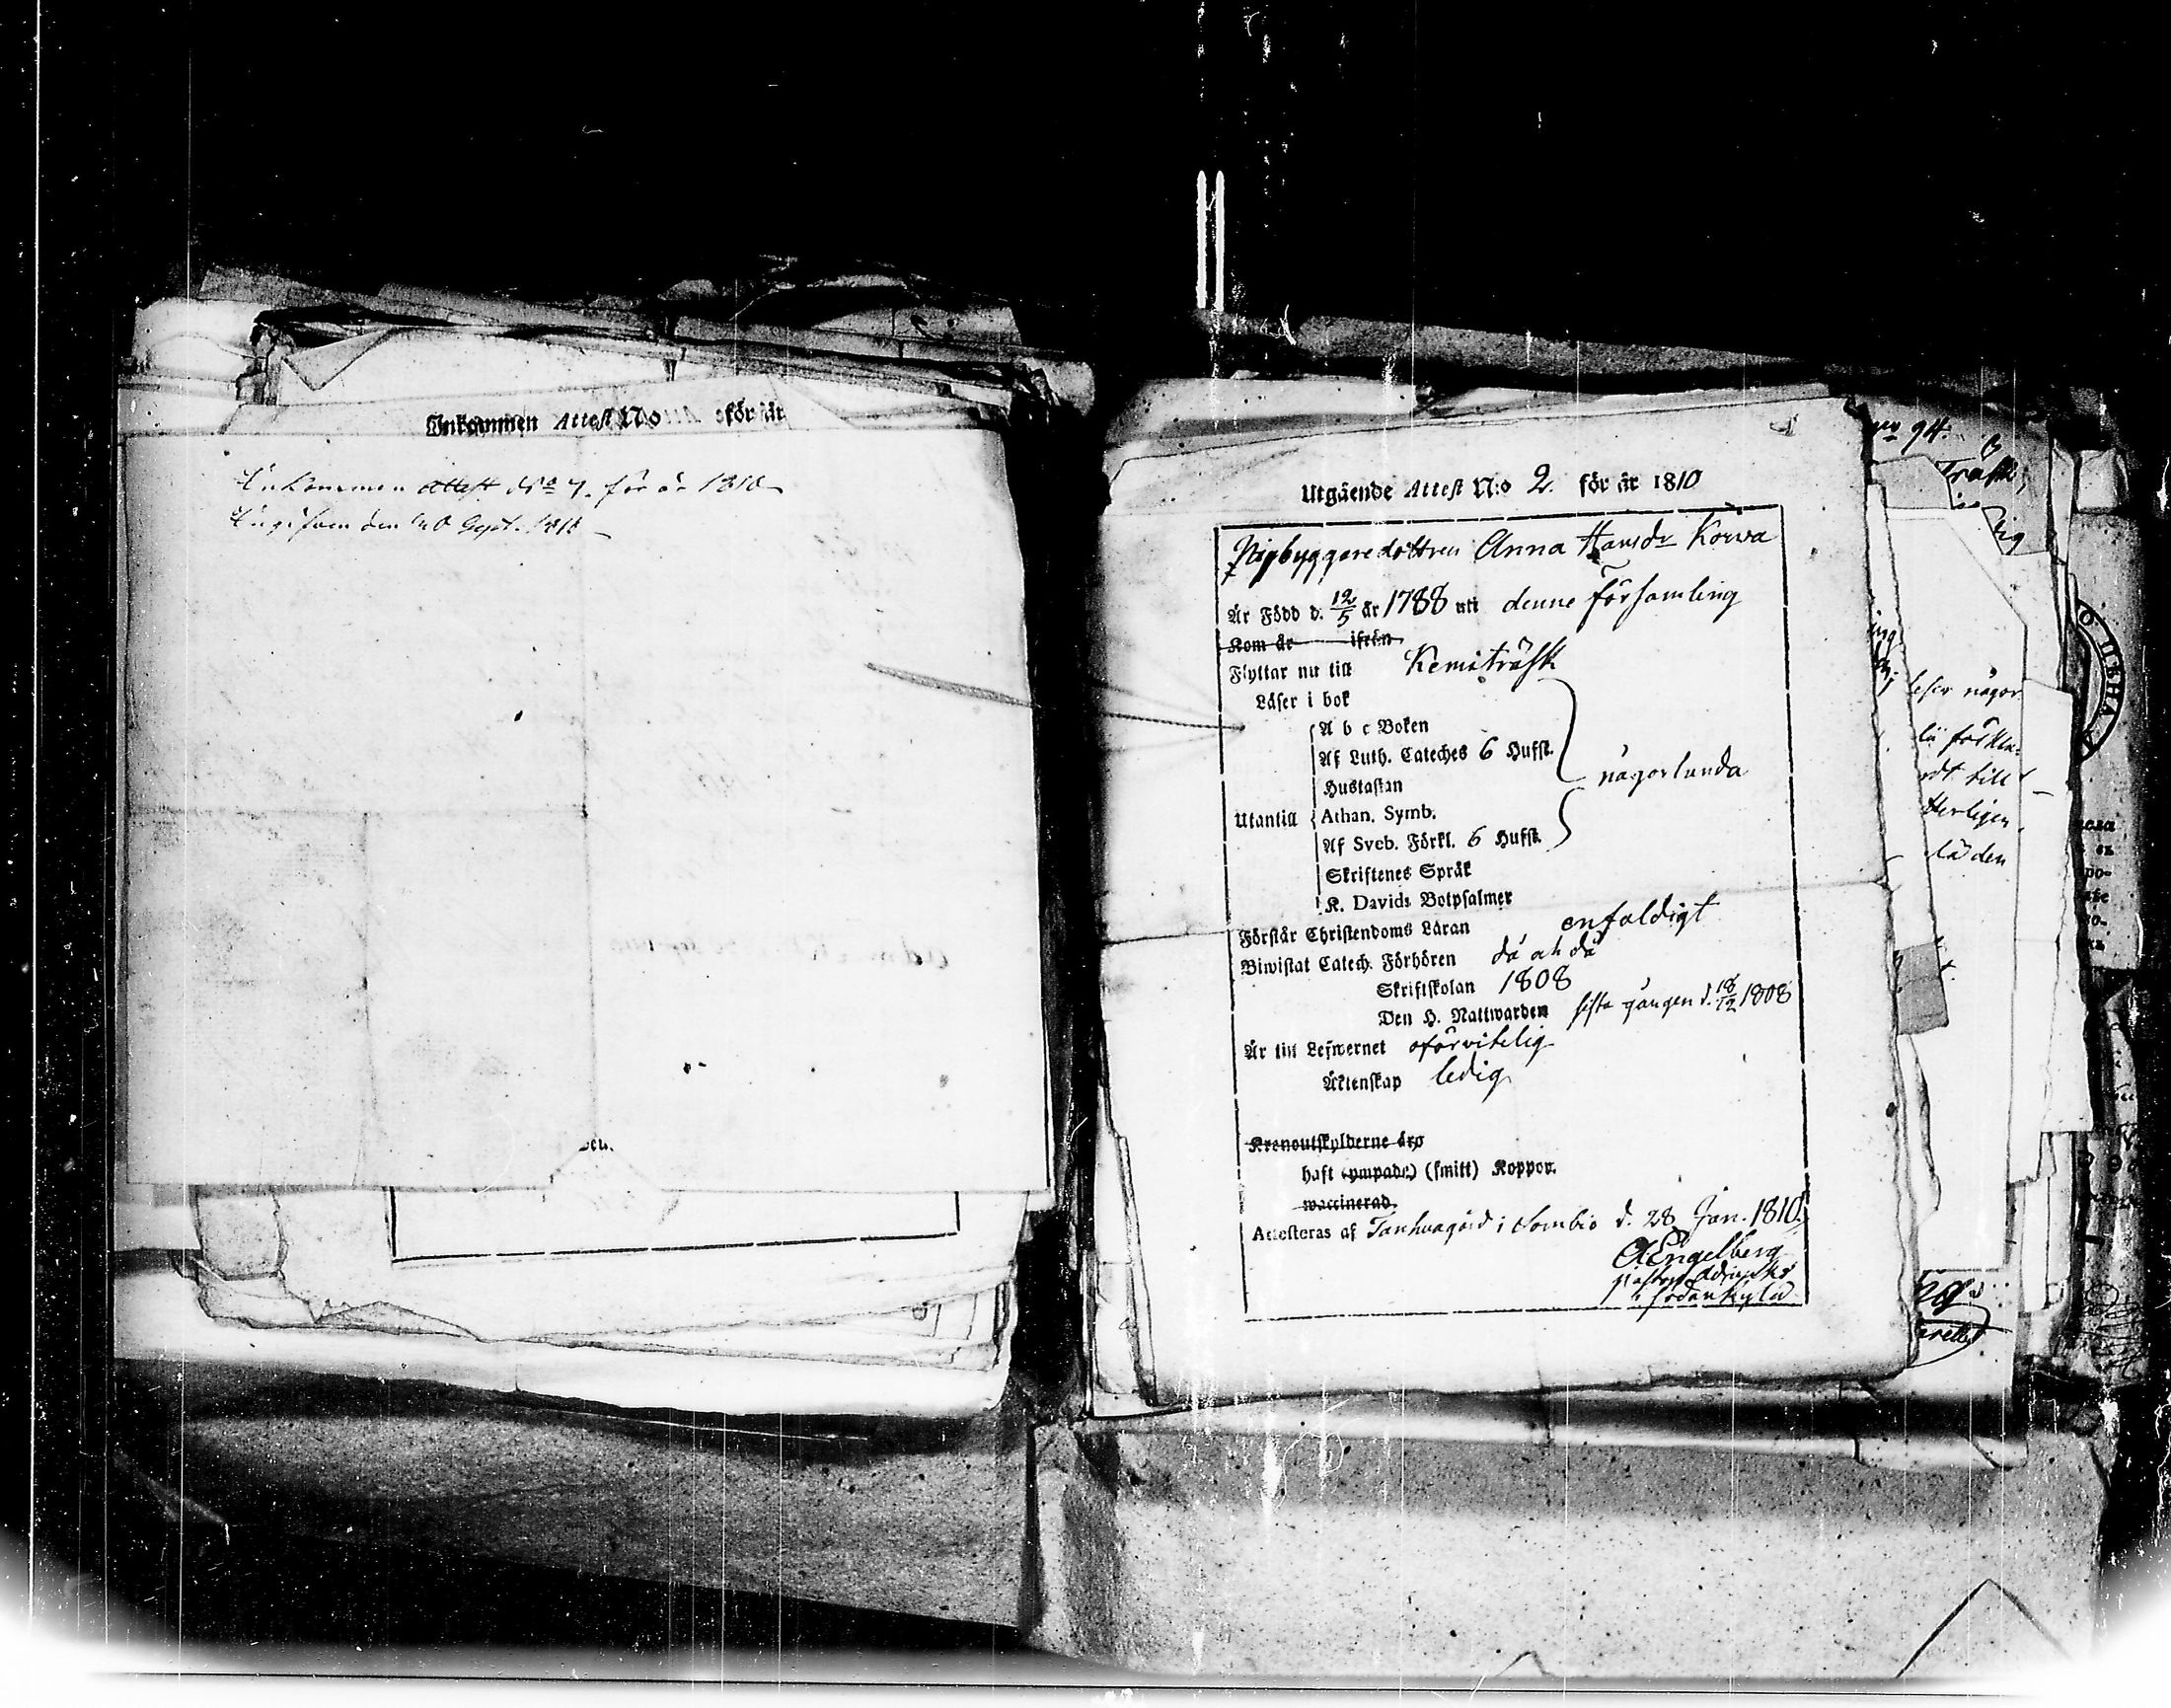 Inkommen Attest No för år
Inkommen Attest No 7. för år 1810
den 20 Sept. 1811
Utgående Attest N:o 2. för år 1810
Nybyggaredottren Anna Hansdr Korva
Är Född d. 12/5 år 1788 uti denne församling
Kom år ifrån
Flyttar nu till Kemiträsk
Läser i bok
A b c Boken
Af Luth. Cateches 6 Hufst.
någorlunda
Hustaflan
Utantill Athan. Symb.
Af Sveb. Förkl. 6 Hufst.
Skriftenes Språk
K. Davids Botpsalmer
Förstår Christendoms Läran enfaldigt
Biwistat Catech. Förhören då och då
Skriftskolan 1808
Den H. Nattwarden sista gången d. 18/12 1808
Är till Lefwernet oförvitelig
Äktenskap ledig
Kronoutskylderne äro
haft (ympade) (smitt) Koppor.
waccinerad.
Attesteras af Tanhuagård i Sombio d. 28 Jan. 1810.
A Engelberg
Sodankylä
No 94.
Träsk,
lig
läser någor
till
den